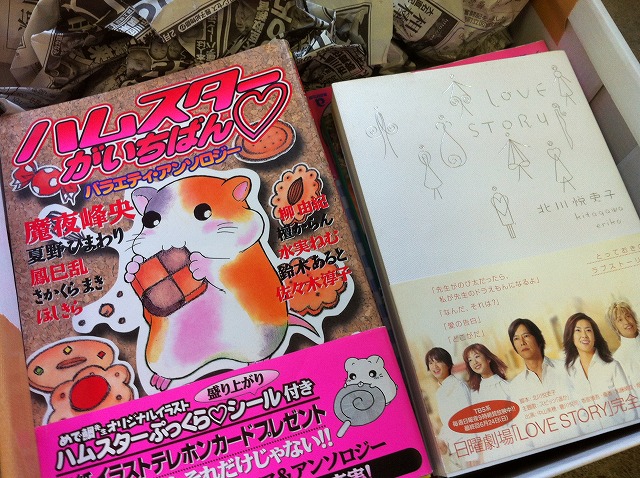 ハムスター
がいちばん♡
バラエティ・アンソロジー
魔夜峰央
夏野ひまわり
鳳巳乱
さかくらまき
ほしきら
柳由紀
榎かりん
水実ねむ
鈴木あると
佐々木淳子
盛り上がり
オリジナルイラスト
ハムスターぷっくら♡シール付き
イラストテレホンカードプレゼント
それだけじゃない!!
&アンソロジー
LOVE
STORY
北川悦吏子
kitagawa
eriko
とっておきの
ラブストーリー
「先生がのび太だったら、
私が先生のドラえもんになるよ」
「なんだ、それは?」
「愛の告白」
「どこがだ」
TBS系
毎週日曜夜9時絶賛放映中!!
最終回6月24日(日)
日曜劇場「LOVE STORY」完全